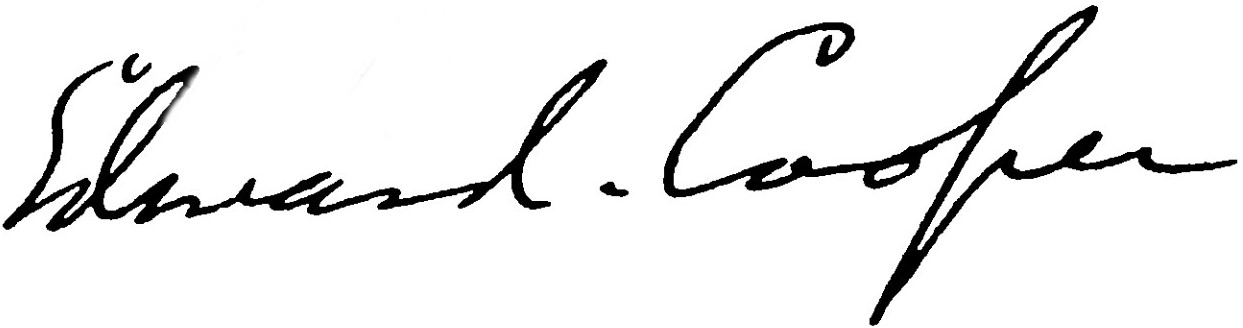 Edward. Cooper